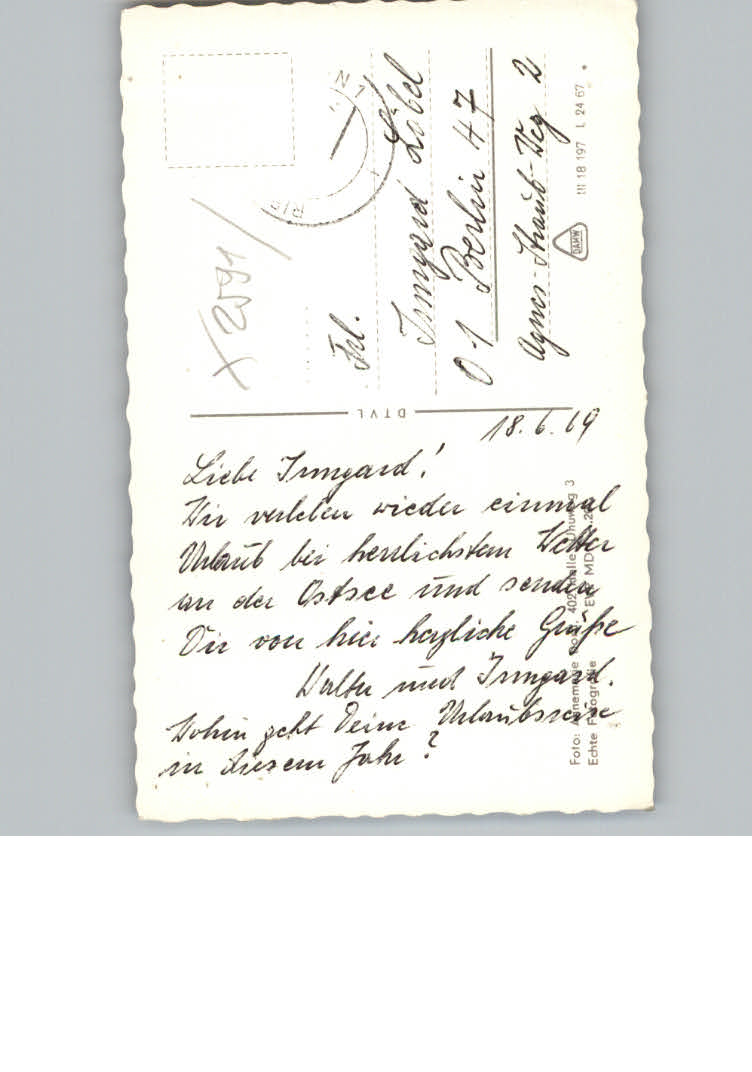 18.6.69
Liebe Irmgard!
Wir verleben wieder einmal
Urlaub bei herrlichstem Wetter
an der Ostsee und senden
Dir von hier herzliche Grüße
Walter und Irmgard.
Wohin geht Deine Urlaubsreise
in diesem Jahr?
Frl.
Irmgard Löbel
01 Berlin 47
Agnes-Straub-Weg 2
X 2591
DTVL
III 18 197 L 24 67
DAMW
Foto: 402 Halle 3
Echte Fotografie EVP MDN